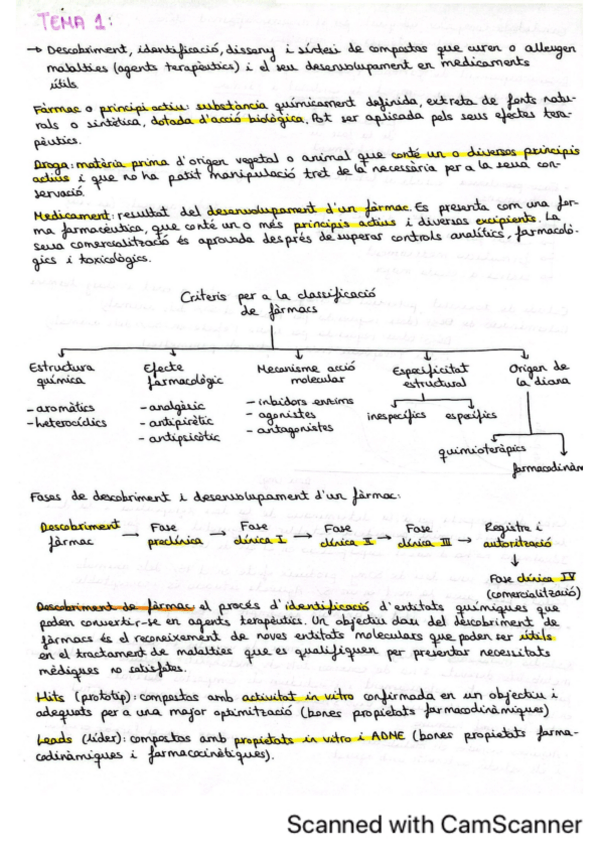 TEMA 1:
→ Descobriment, identificació, dissany i síntesi de compostos que curen o alleugen
malalties (agents terapèutics) i el seu desenvolupament en medicaments
útils
Fàrmac o principi actiu: substància químicament definida, extreta de fonts natu-
rals o sintètica, dotada d'acció biològica. Pot ser aplicada pels seus efectes tera-
pèutics.
Droga: matèria prima d'origen vegetal o animal que conté un o diversos principis
actius i que no ha patit manipulació tret de la necessària per a la seua con-
servació.
Medicament: resultat del desenvolupament d'un fàrmac. Es presenta com una for-
ma farmacèutica, que conté un o més principis actius i diversos excipients. La
seua comercialització és aprovada després de superar controls analítics, farmacolò-
gics i toxicològics.
Criteris per a la classificació
de fàrmacs
Estructura química
- aromàtics
- heterocíclics
Efecte farmacològic
- analgèsic
- antipirètic
- antipsicòtic
Mecanisme acció molecular
- inhibidors enzims
- agonistes
- antagonistes
Especificitat estructural
inespecífics específics
Origen de la diana
quimioteràpics
farmacodinàm
Fases de descobriment i desenvolupament d'un fàrmac:
Descobriment fàrmac → Fase preclínica → Fase clínica I → Fase clínica II → Fase clínica III → Registre i autorització
↓
Fase clínica IV
(comercialització)
Descobriment de fàrmac: el procés d'identificació d'entitats químiques que
poden convertir-se en agents terapèutics. Un objectiu clau del descobriment de
fàrmacs és el reconeixement de noves entitats moleculars que poden ser útils
en el tractament de malalties que es qualifiquen per presentar necessitats
mèdiques no satisfetes.
Hits (prototip): compostos amb activitat in vitro confirmada en un objectiu i
adequats per a una major optimització (bones propietats farmacodinàmiques)
Leads (líder): compostos amb propietats in vitro i ADME (bones propietats farma-
codinàmiques i farmacocinètiques).
Scanned with CamScanner